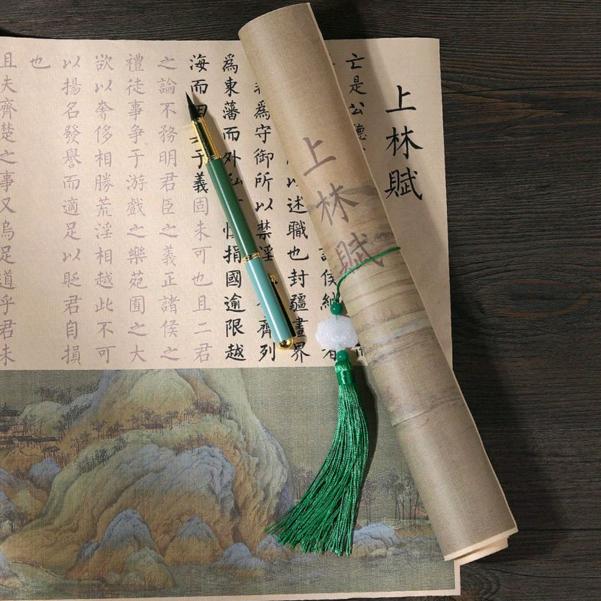 上林賦
亡是公
侯納
以述職也封疆畫界
爲守御所以禁淫 齊列
爲東藩而外私 捐國逾限越
海而 于義固未可也且二君
之論不務明君臣之義正諸侯之
禮徒事爭于游戲之樂苑囿之大
欲以奢侈相勝荒淫相越此不可
以揚名發譽而適足以貶君自損
也
且夫齊楚之事又烏足道乎君未
上林賦